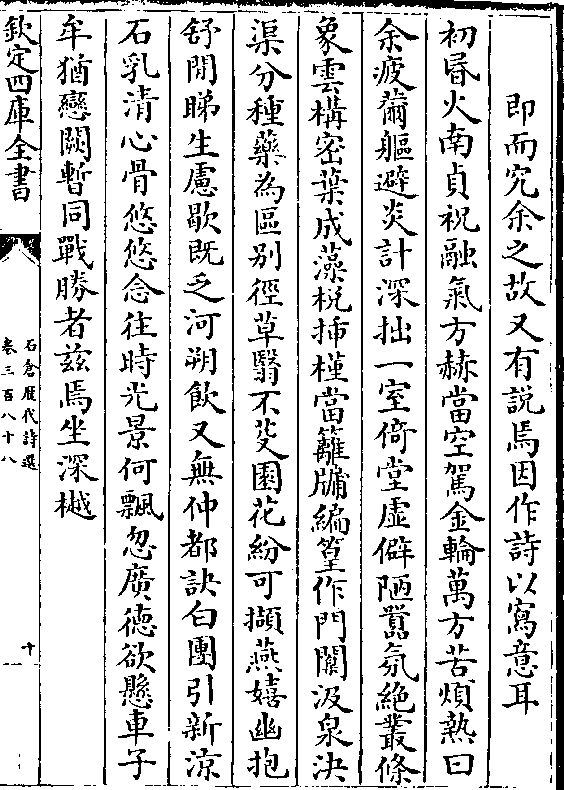 即而究余之故又有説焉因作詩以寫意耳
初昬火南貞祝融氣方赫當空駕金輪萬方苦煩熱曰
余疲薾軀避炎計深拙一室倚堂虛僻陋囂氛絶叢條
象雲構密葉成藻棁揷槿當籬牗編篁作門闌汲泉決
渠分種藥為區别徑草翳不芟園花紛可擷燕嬉幽抱
舒閒睇生慮歇既乏河朔飲又無仲都訣白團引新涼
石乳清心骨悠悠念往時光景何飄忽廣徳欲懸車子
牟猶戀闕暫同戰勝者兹焉坐深樾
欽定四庫全書
石倉歴代詩選
卷三百八十八
十